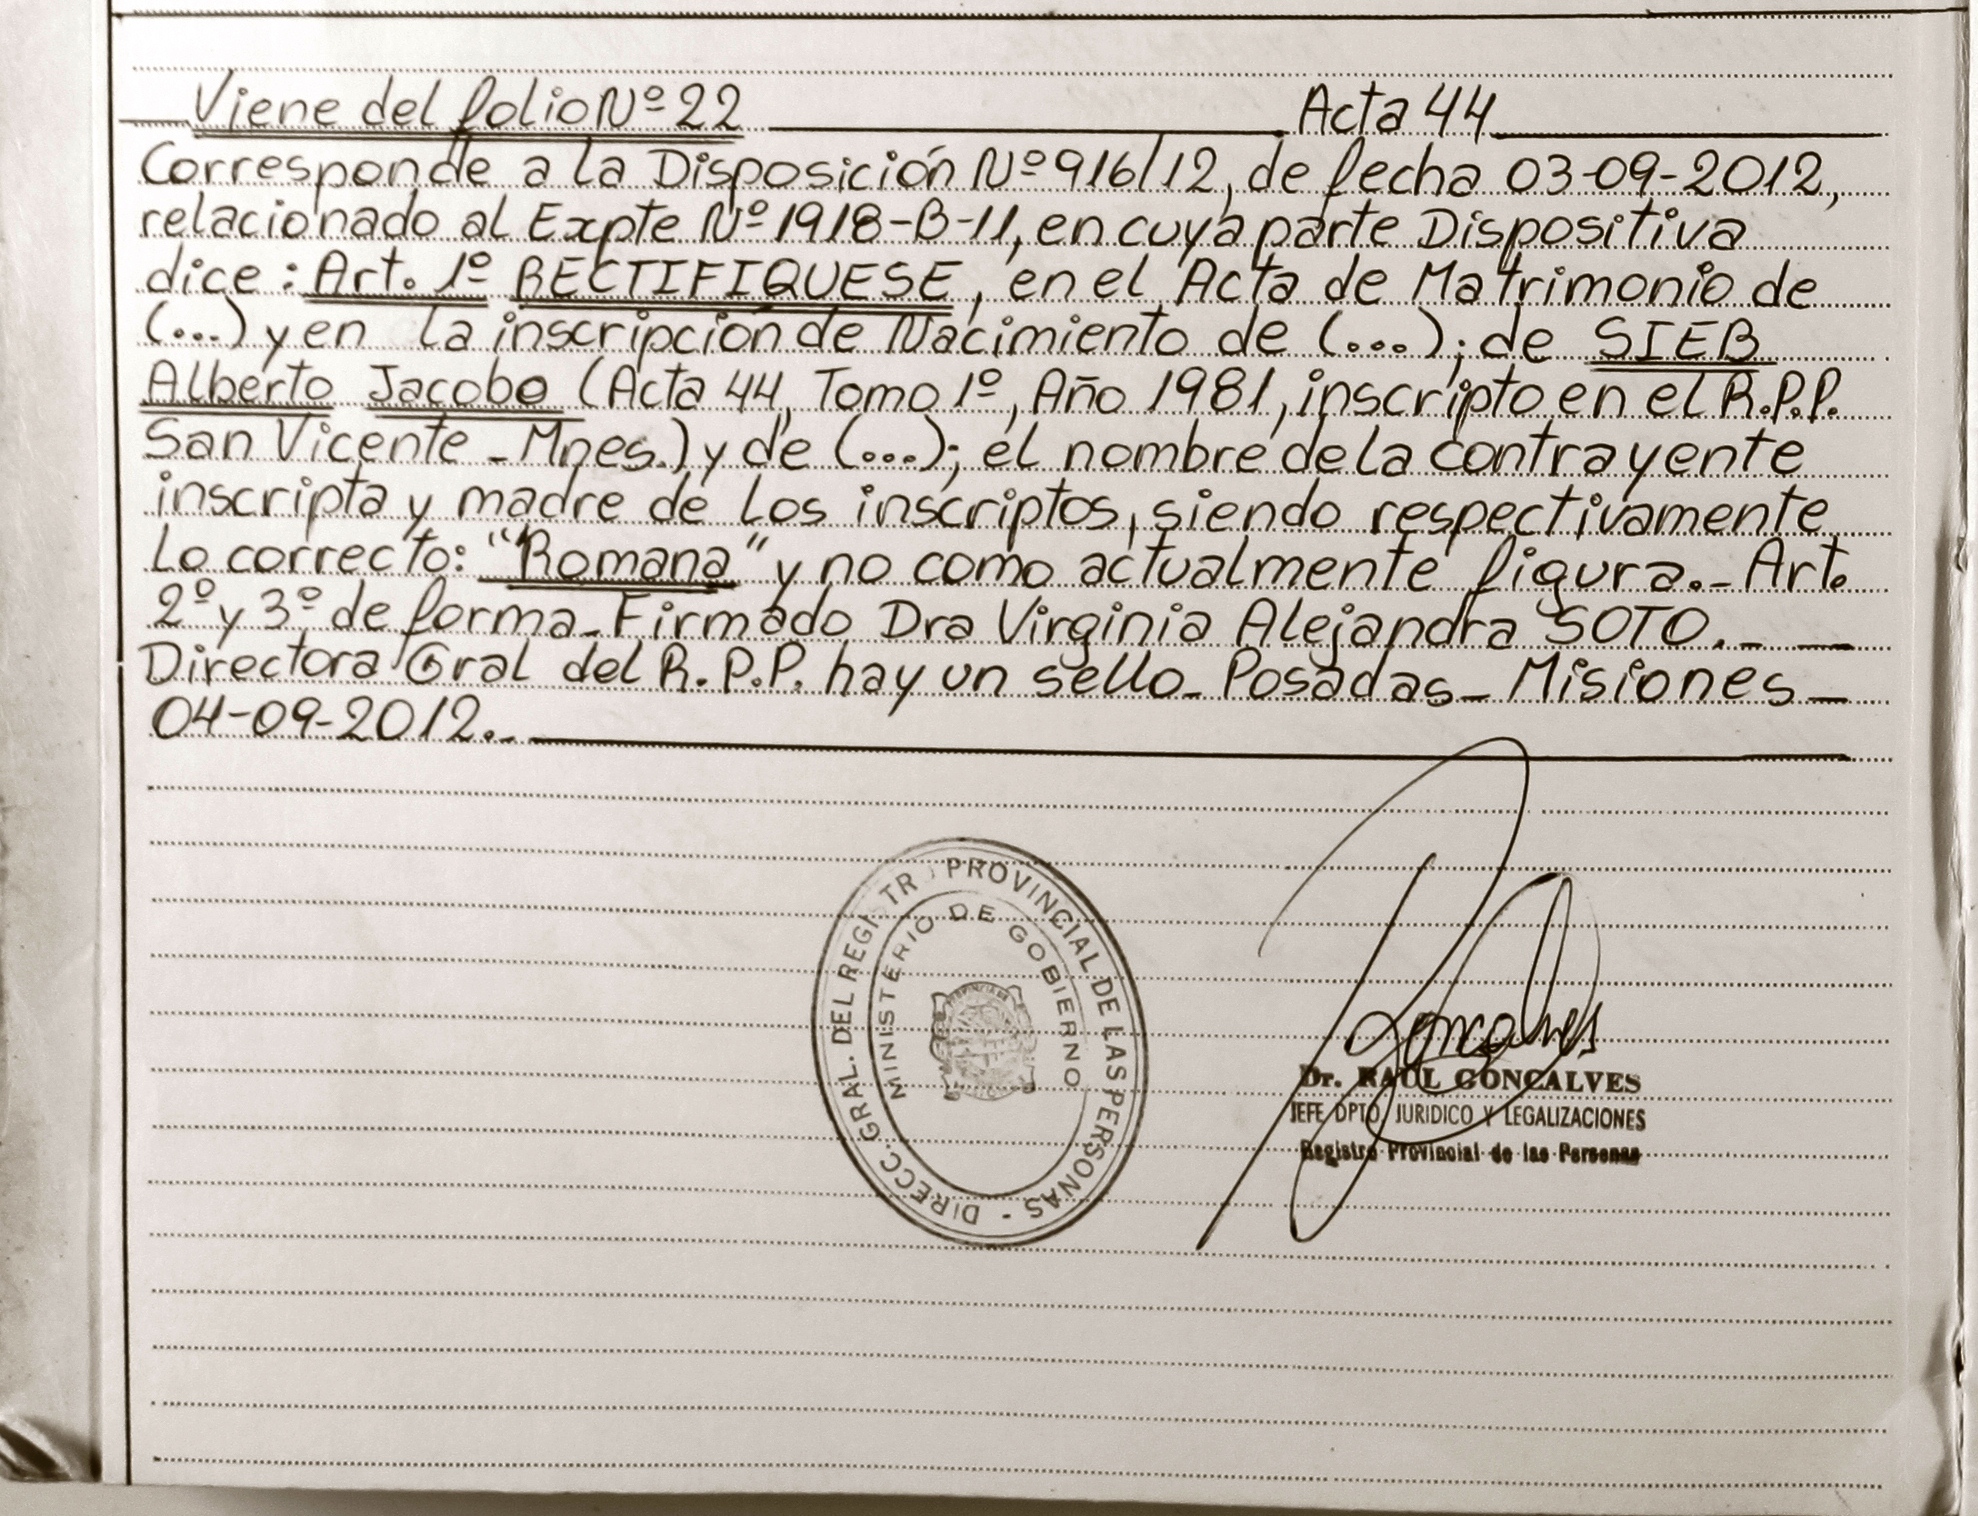 Viene del folio Nº 22 Acta 44
Corresponde a la Disposición Nº 916/12, de fecha 03-09-2012,
relacionado al Expte Nº 1918-B-11, en cuya parte Dispositiva
dice: Art. 1º RECTIFIQUESE, en el Acta de Matrimonio de
(...) y en la inscripción de Nacimiento de (...); de SIEB
Alberto Jacobo (Acta 44, Tomo 1º, Año 1981, inscripto en el R.P.P.
San Vicente - Mnes.) y de (...); el nombre de la contrayente
inscripta y madre de los inscriptos, siendo respectivamente
lo correcto: "Romana" y no como actualmente figura.- Art.
2º y 3º de forma - Firmado Dra Virginia Alejandra SOTO.-
Directora Gral del R.P.P. hay un sello - Posadas - Misiones -
04-09-2012.-
DIRECC. GRAL. DEL REGISTR PROVINCIAL DE LAS PERSONAS -
MINISTERIO DE GOBIERNO
PROVINCIA DE
Goncalves
Dr. RAUL GONCALVES
JEFE DPTO. JURIDICO Y LEGALIZACIONES
Registro Provincial de las Personas